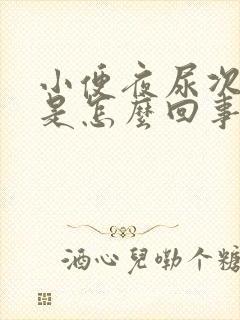 小便夜尿次
是怎麼回事
酒心兒嘞个糖